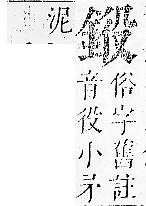 俗字舊註
音役小矛
泥